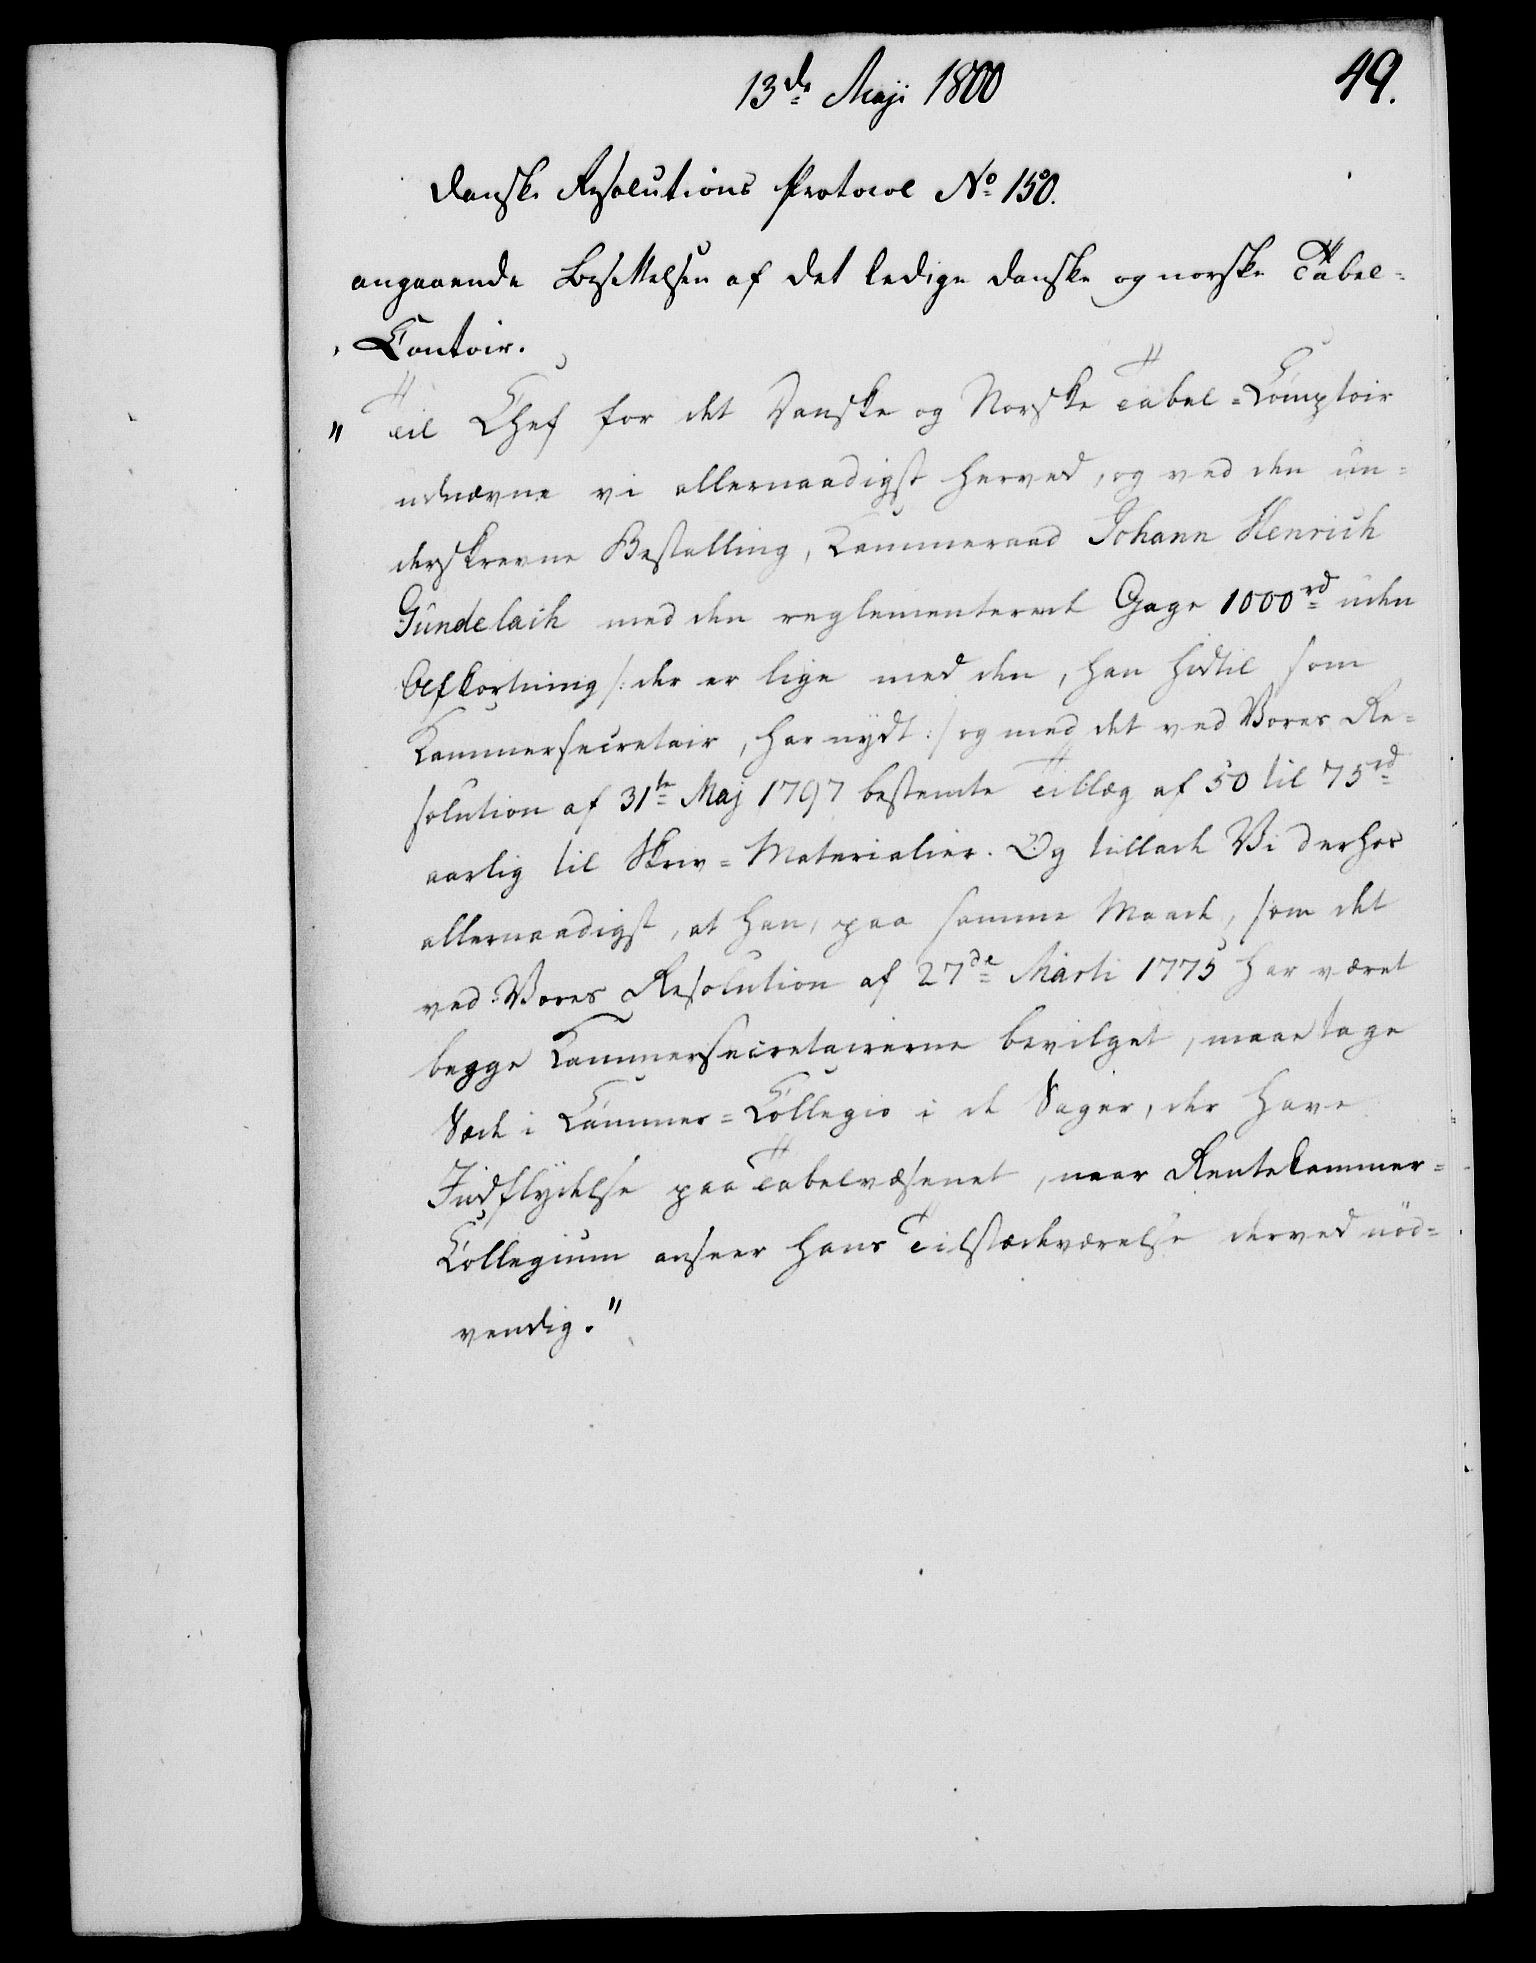 13de Maji 1800
49.
Danske Resolutions Protocol No 150.
angaaende Besettelsen af det ledige danske og norske Tabel-
Contoir.
" Til Chef for det Danske og Norske Tabel-Comptoir
udnævne vi allernaadigst herved, og ved den un-
derskrevne Bestalling, Kammeraad Johann Henrich
Gundelach med den reglementerede Gage 1000rd uden
Afkortning /: der er lige med den, han hidtil som
Kammersecretair, har nydt :/ og med det ved Vores Re-
solution af 31te Maj 1797 bestemte Tillæg af 50 til 75rd
aarlig til Skriv-Materialier. Og tillade Vi derhos
allernaadigst, at han, paa samme Maade, som det
ved Vores Resolution af 27de Marti 1775 har været
begge Kammersecretairerne bevilget, maae tage
Sæde i Cammer-Collegio i de Sager, der have
Indflydelse paa Tabelvæsenet, naar Rentekammer-
Collegium anseer hans Tilstædeværelse derved nöd-
vendig."